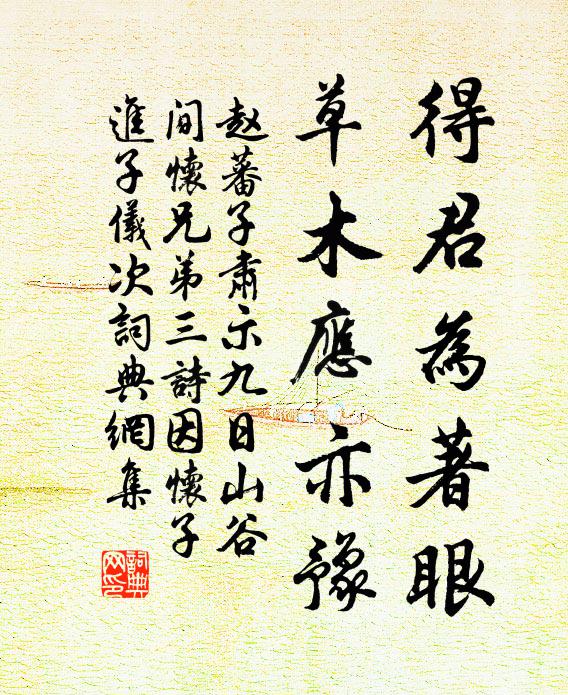 得君為著眼
草木應亦豫
赵蕃子肅示九日山谷
间懷兄弟三詩因懷子
進子儀次詞典網集
詞典
网印